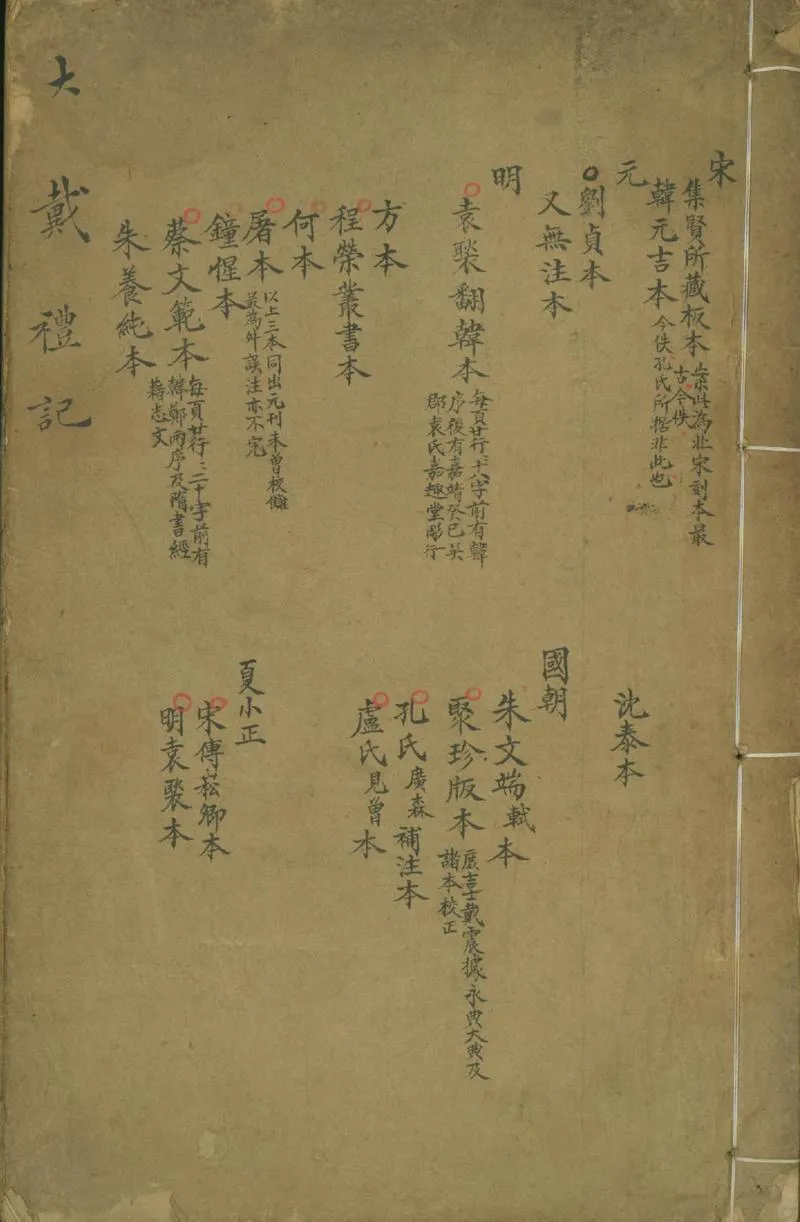 大戴禮記
宋
集賢所藏板本
案此為北宋刻本最
古今佚
韓元吉本
今佚孔氏所據非此也
元
劉貞本
又無注本
明
袁褧翻韓本
每頁廿行二十八字前有韓
序後有嘉靖癸巳吳
郡袁氏嘉趣堂彫行
方本
程榮叢書本
何本
屠本
以上三本同出元刊未曾校讎
最為舛誤注亦不完
鐘惺本
蔡文範本
每頁廿行二十字前有
韓鄭兩序及隋書經
藉志文
朱養純本
沈泰本
國朝
朱文端軾本
聚珍版本
庶吉士戴震據永典大典及
諸本校正
孔氏廣森補注本
盧氏見曾本
夏小正
宋傅崧卿本
明袁褧本